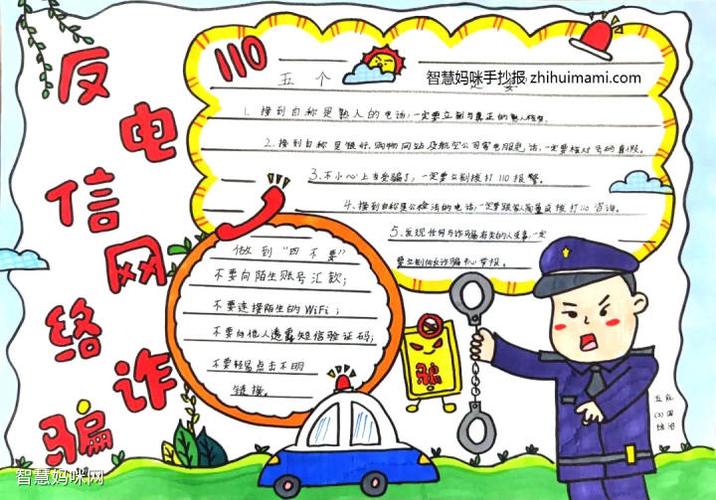 反电信网络诈骗
110
智慧妈咪手抄报·zhihuimami.com
五个
1.接到自称是熟人的电话,一定要立刻与真正的熟人核查。
2.接到自称是银行、购物网站及航空公司客服电话,一定要核对号码真假。
3.不小心上当受骗了,一定要立刻拨打110报警。
4.接到自称是公检法的电话,一定要跟家人商量或拨打110咨询。
5.发现任何与诈骗有关的人或事,一定
要立刻向反诈骗中心举报。
做到“四不要”
不要向陌生账号汇款;
不要连接陌生的WiFi;
不要向他人透露短信验证码;
不要轻易点击不明
链接。
骗
智慧妈咪网